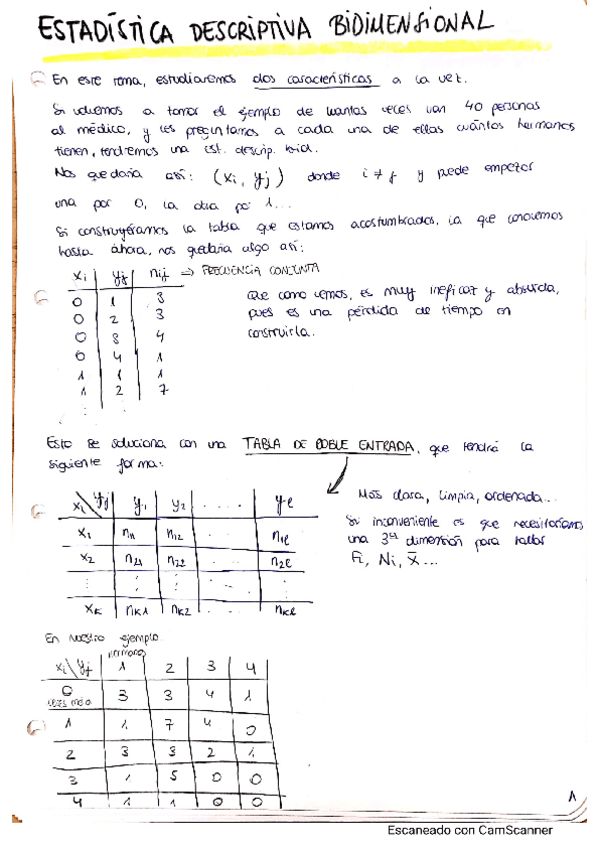 ESTADÍSTICA DESCRIPTIVA BIDIMENSIONAL
En este tema, estudiaremos dos características a la vez.
Si volvemos a tomar el ejemplo de cuantas veces van 40 personas
al médico, y les preguntamos a cada una de ellas cuántos hermanos
tienen, tendremos una est. descrip. bid.
Nos quedaría así: (xi, yj) donde i ≠ j y puede empezar
una por 0, la otra por 1...
Si construyéramos la tabla que estamos acostumbrados, la que conocemos
hasta ahora, nos quedaría algo así:
xi yj nij ⇒ FRECUENCIA CONJUNTA
0 1 3
0 2 3
0 3 4
0 4 1
1 1 1
1 2 7
Que como vemos, es muy ineficaz y absurda,
pues es una pérdida de tiempo en
construirla.
Esto se soluciona con una TABLA DE DOBLE ENTRADA, que tendrá la
siguiente forma:
xi \ yj y1 y2 .... yl
x1 n11 n12 ... n1l
x2 n21 n22 ... n2l
xk nk1 nk2 ... nkl
Más clara, limpia, ordenada...
Su inconveniente es que necesitaríamos
una 3ª dimensión para hallar
Fi, Ni, x̄...
En nuestro ejemplo
hermanos
xi \ yj 1 2 3 4
0 3 3 4 1
veces méd
1 1 7 4 0
2 3 3 2 1
3 1 5 0 0
4 1 1 0 0
1
Escaneado con CamScanner